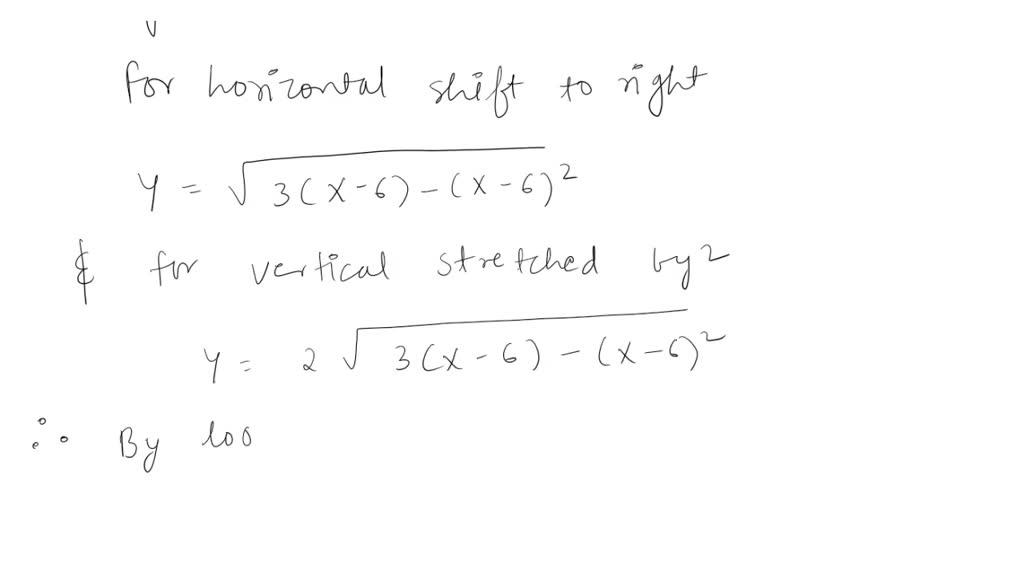 for horizontal shift to right
y = √3(x-6)-(x-6)²
& for vertical stretched by 2
y = 2√3(x-6)-(x-6)²
∴ By loo